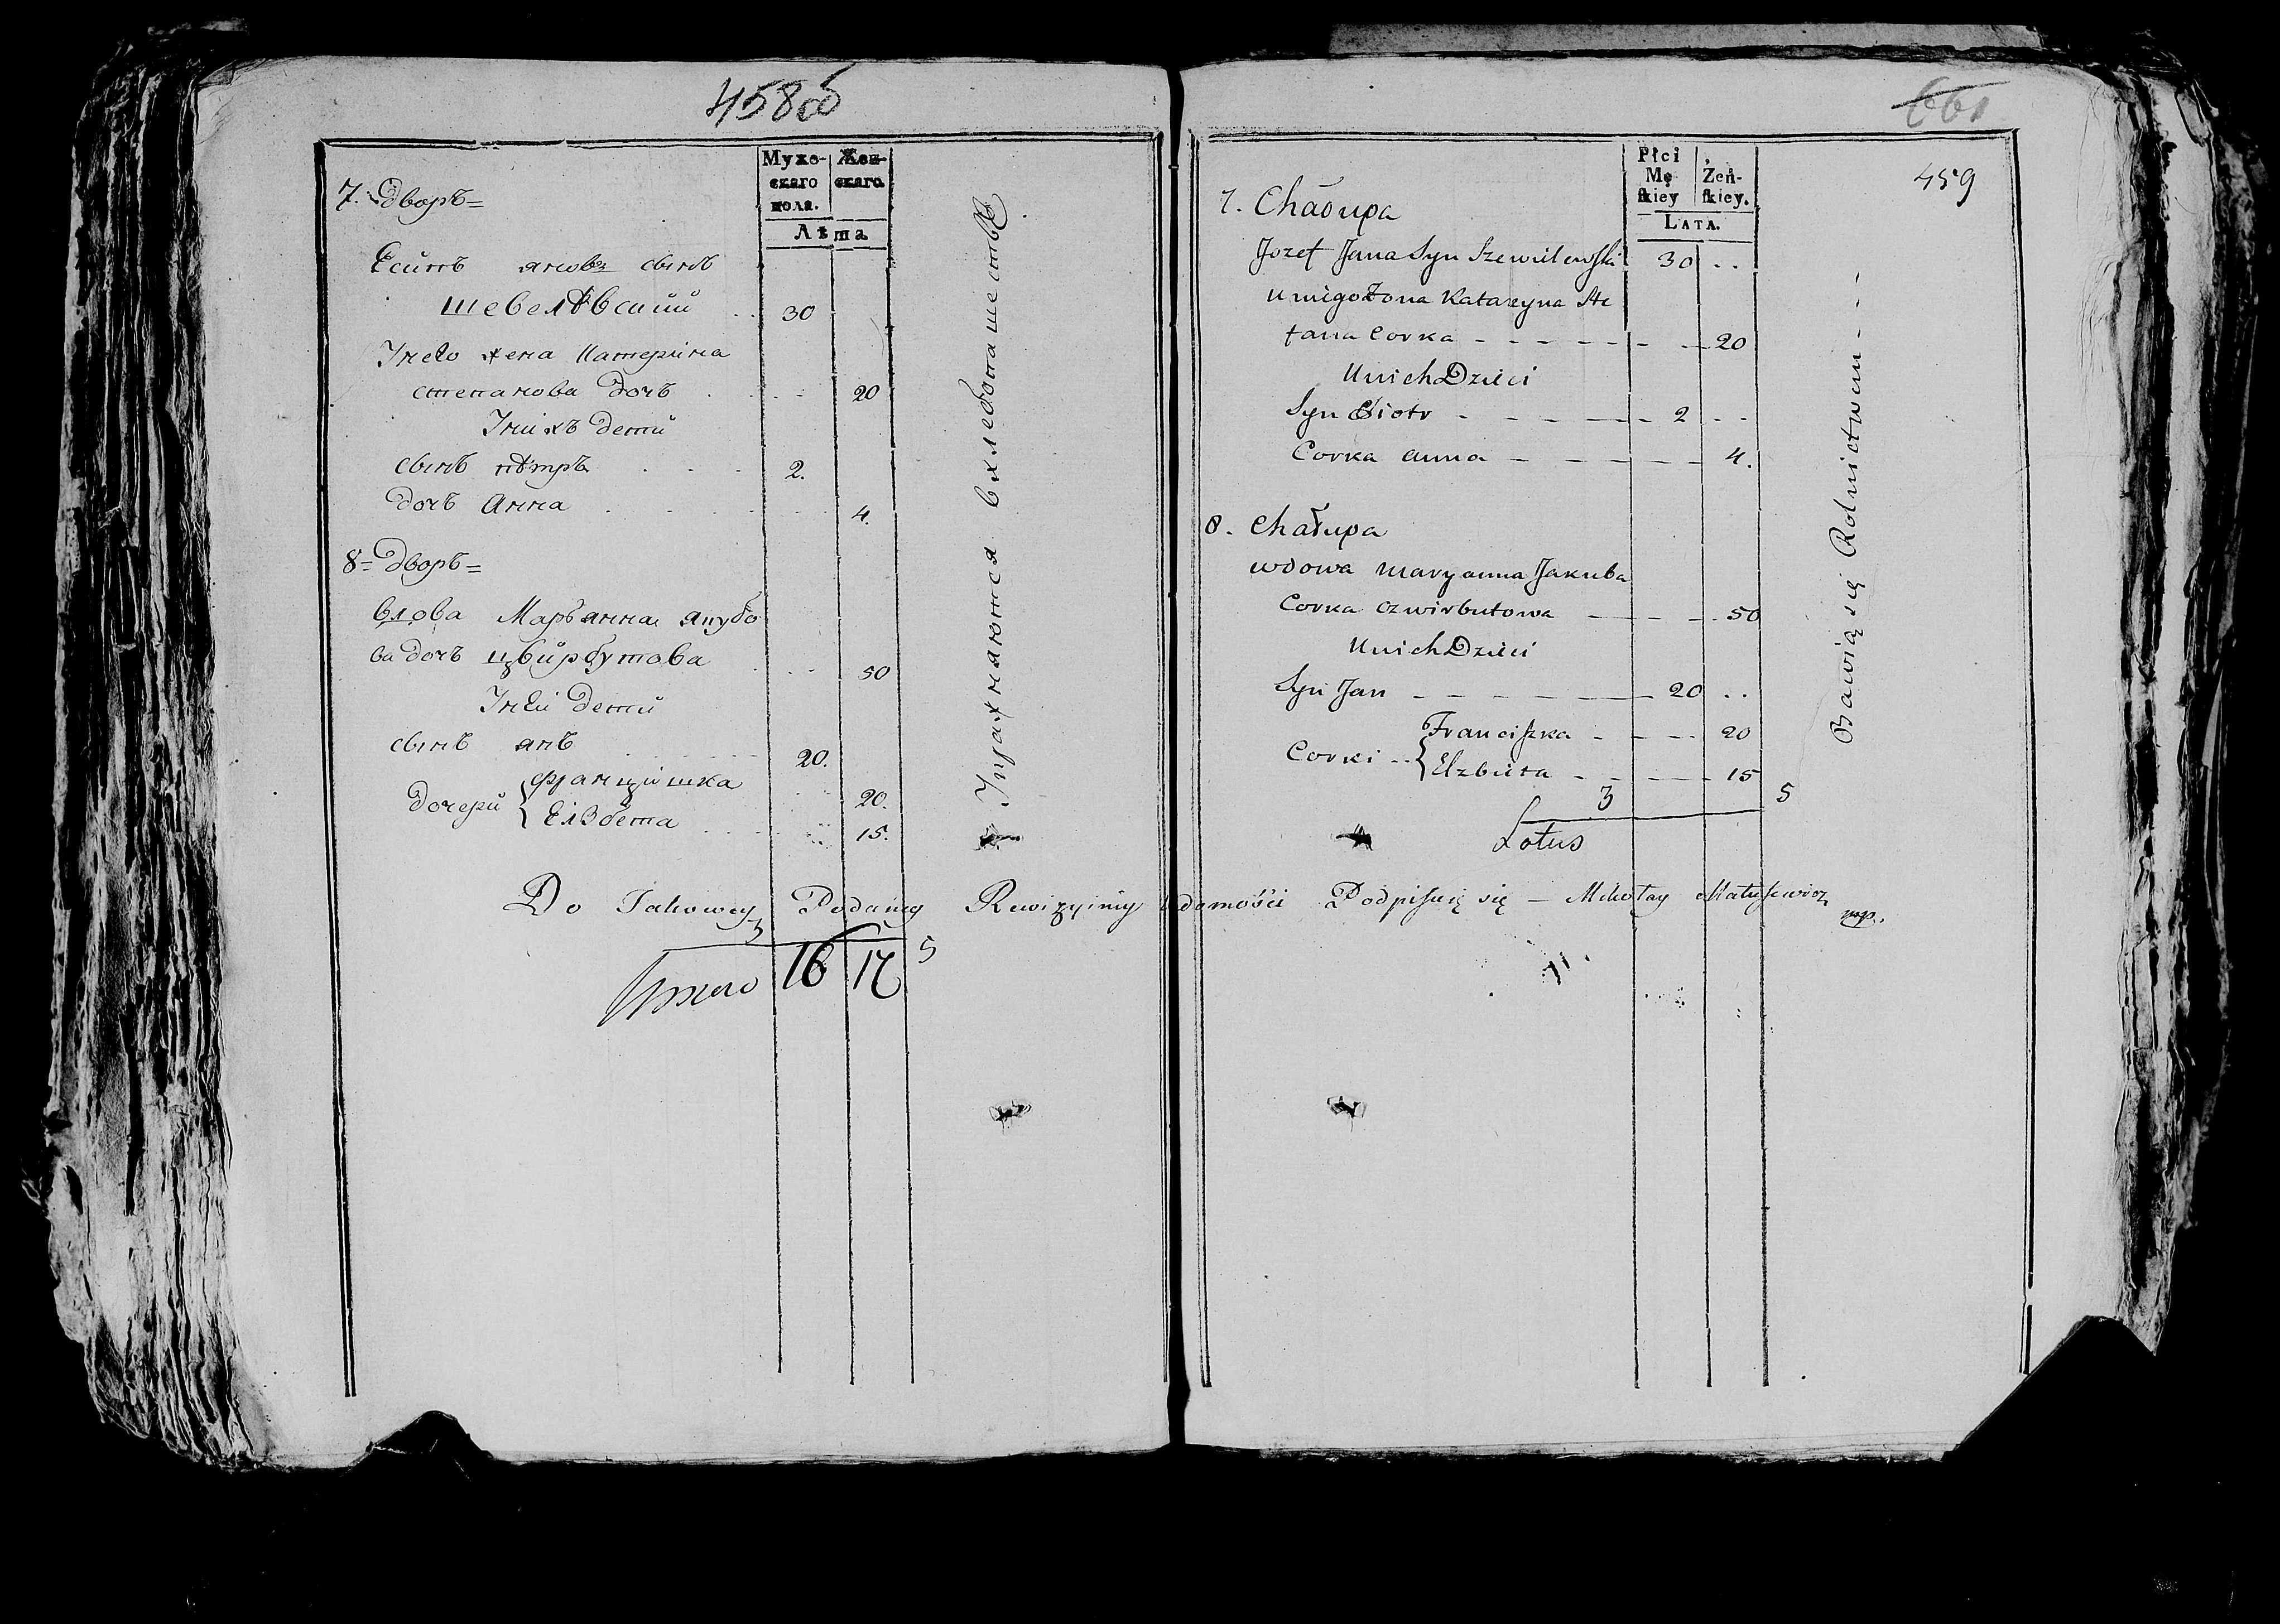 458об
Мужескаго пола.
Женскаго.
Лѣта
7. Дворъ=
Есипъ яновъ сынъ
шевелѣвский 30
Унего жена Катерина
степанова дочь 20
Унихъ дети
сынъ пѣтръ 2.
дочь Анна 4.
8= Дворъ=
вдова Марьянна якубо
ва дочь цвирбутова 50
Унеи дети
сынъ янъ 20.
дочери { францишка 20.
Елзбета 15.
3 5
16 17
Упражняются вхлебопашествѣ.
661
459
Płci
Mę
skiey
Żeń-
skiey.
LATA.
7. Chałupa
Jozef Jana Syn Szewielewski 30 ..
u niego Żona Katarzyna Ste
fana Corka - - - - - 20
U nich Dzieci
Syn Piotr - - - - - 2 ..
Corka anna - - - - - 4.
8. Chałupa
wdowa maryanna Jakuba
Corka Czwirbutowa - - - 50
U nich Dzieci
Syn Jan - - - - - 20 ..
Corki -- { Franciszka - - - 20
Elzbieta - - - 15
3 5
Lotus
Bawią się Rolnictwem - - -
Do Takowey Podaney Rewizyiney wiadomości Podpisuię się — Mikołay Matusewicz mp.